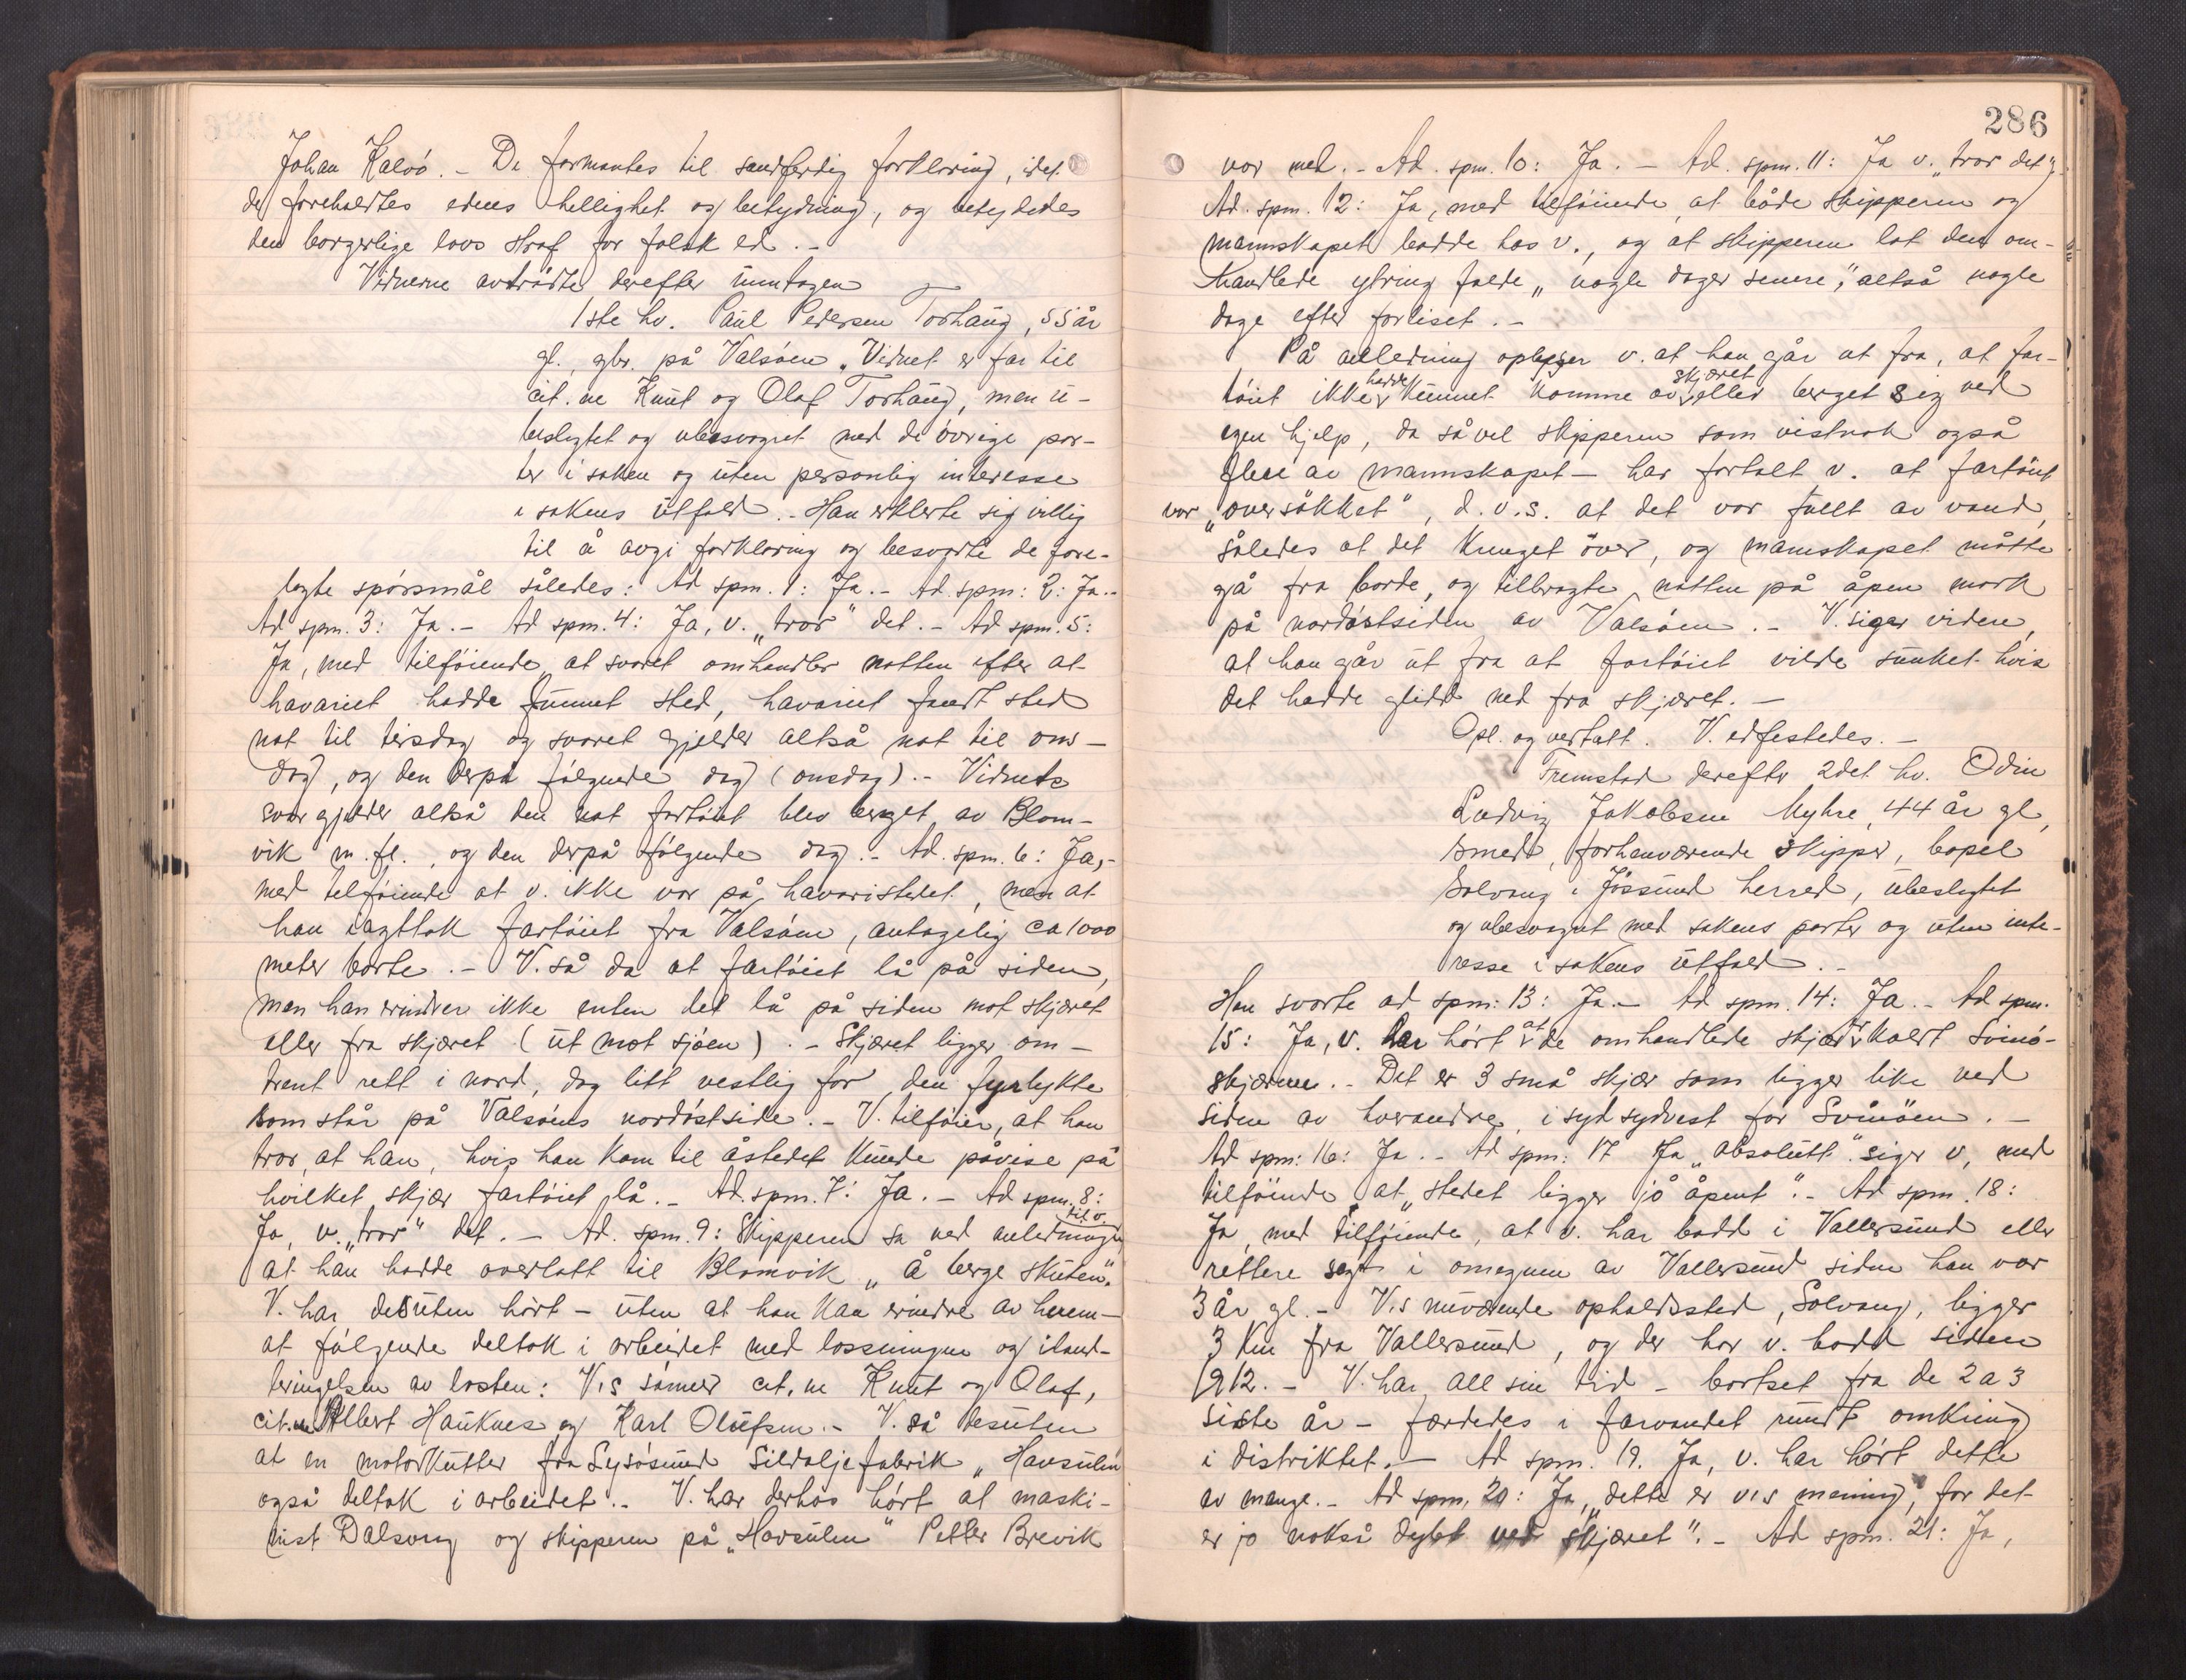 Johan Kalvö. - De formantes til sandferdig forklaring, idet
de foreholdtes edens hellighet og betydning, og betydedes
den borgerlige lovs straf for falsk ed. -
Vidnerne avtrådte derefter unntagen
1ste hv. Paul Pedersen Torhaug, 55 år
gl., gbr. på Valsöen. Vidnet er far til
cit.ne Knut og Olaf Torhaug, men u-
beslegtet og ubesvogret med de övrige par-
ter i saken og uten personlig interesse
i sakens utfald. - Han erklerte sig villig
til å avgi forklaring og besvarte de fore-
lagte spörsmål således: Ad spm. 1: Ja. - Ad spm: 2: Ja. -
Ad spm. 3: Ja. - Ad spm. 4: Ja, v. "tror" det. - Ad spm. 5:
Ja, med tilföiende, at svaret omhandler natten efter at
havariet hadde funnet sted, havariet fandt sted
nat til tirsdag og svaret gjelder altså nat til ons-
dag, og den derpå fölgende dag (onsdag). - Vidnets
svar gjelder altså den nat fartöiet blev berget av Blom-
vik m.fl., og den derpå fölgende dag. - Ad. spm. 6: Ja, -
med tilföiende at v. ikke var på havaristedet, men at
han iagttok fartöiet fra Valsöen, antagelig ca 1000
meter borte. - V. så da at fartöiet lå på siden,
men han erindrer ikke enten det lå på siden mot skjæret
eller fra skjæret (ut mot sjöen). - Skjæret ligger om-
trent rett i nord, dog litt vestlig for den fyrlykte
som står på Valsöens nordöstside. - V. tilföier, at han
tror, at han, hvis han kom til åstedet kunde påvise på
hvilket skjær fartöiet lå. - Ad. spm. 7: Ja. - Ad spm. 8:
Ja, v. "tror" det. - Ad. spm. 9: Skipperen sa ved anledningen til v.
at han hadde overlatt til Blomvik "å berge skuten".
V. har desuten hört - uten at han kan erindre av hvem -
at fölgende deltok i arbeidet med lossningen og iland-
bringelsen av lasten: V.s sönner cit.ne Knut og Olaf,
cit.ne Albert Hauknes og Karl Olufsen. - V. så desuten
at en motorkutter fra Lysösund Sildoljefabrik "Havsulen"
også deltok i arbeidet. - V. har derhos hört at maski-
nist Dalsvang og skipperen på "Havsulen" Petter Brevik
286
var med. - Ad. spm. 10: Ja. - Ad. spm. 11: Ja v. "tror det".
Ad. spm. 12: Ja, med tilföiende, at både skipperen og
mannskapet bodde hos v., og at skipperen lot den om-
handlede ytring falde "nogle dager senere", altså nogle
dage efter forliset. -
På anledning oplyser v. at han går ut fra, at far-
töiet ikke hadde kunnet komme av skjæret eller berget sig ved
egen hjelp, da såvel skipperen som vistnok også
flere av mannskapet - har fortalt v. at fartöiet
var "oversökket", d.v.s. at det var fullt av vand,
således at det krenget över, og mannskapet måtte
gå fra borde, og tilbragte natten på åpen mark
på nordöstsiden av Valsöen. - V. siger videre,
at han går ut fra at fartöiet vilde sunket hvis
det hadde glidd ned fra skjæret. -
Opl. og vertatt. V. edfestedes. -
Fremstod derefter 2det hv. Odin
Ludvig Jakobsen Myhre, 44 år gl,
smed, forhenværende skipper, bopel
Solvang i Jössund herred, ubeslegtet
og ubesvogret med sakens parter og uten inte-
resse i sakens utfald. -
Han svarte ad spm: 13: Ja. - Ad spm. 14: Ja. - Ad spm.
15: Ja, v. har hört at de omhandlede skjær er kaldt Svinö-
skjærene. - Det er 3 små skjær som ligger like ved
siden av hverandre, i syd sydvest for Svinöen. -
Ad spm: 16: Ja. - Ad spm: 17 Ja "absolutt" siger v, med
tilföiende, at "stedet ligger jo åpent". - Ad spm. 18:
Ja, med tilföiende, at v. har bodd i Vallersund eller
rettere sagt i omegnen av Vallersund siden han var
3 år gl. - V.s nuværende opholdssted, Solvang, ligger
3 km fra Vallersund, og der har v. bodd siden
1912. - V. har all sin tid - bortset fra de 2 a 3
siste år - færdedes i farvandet rundt omkring
i distriktet. - Ad spm. 19. Ja, v. har hört dette
av mange. - Ad spm. 20: Ja, "dette er v.s mening, for det
er jo nokså dypt ved skjæret". - Ad spm. 21: Ja,